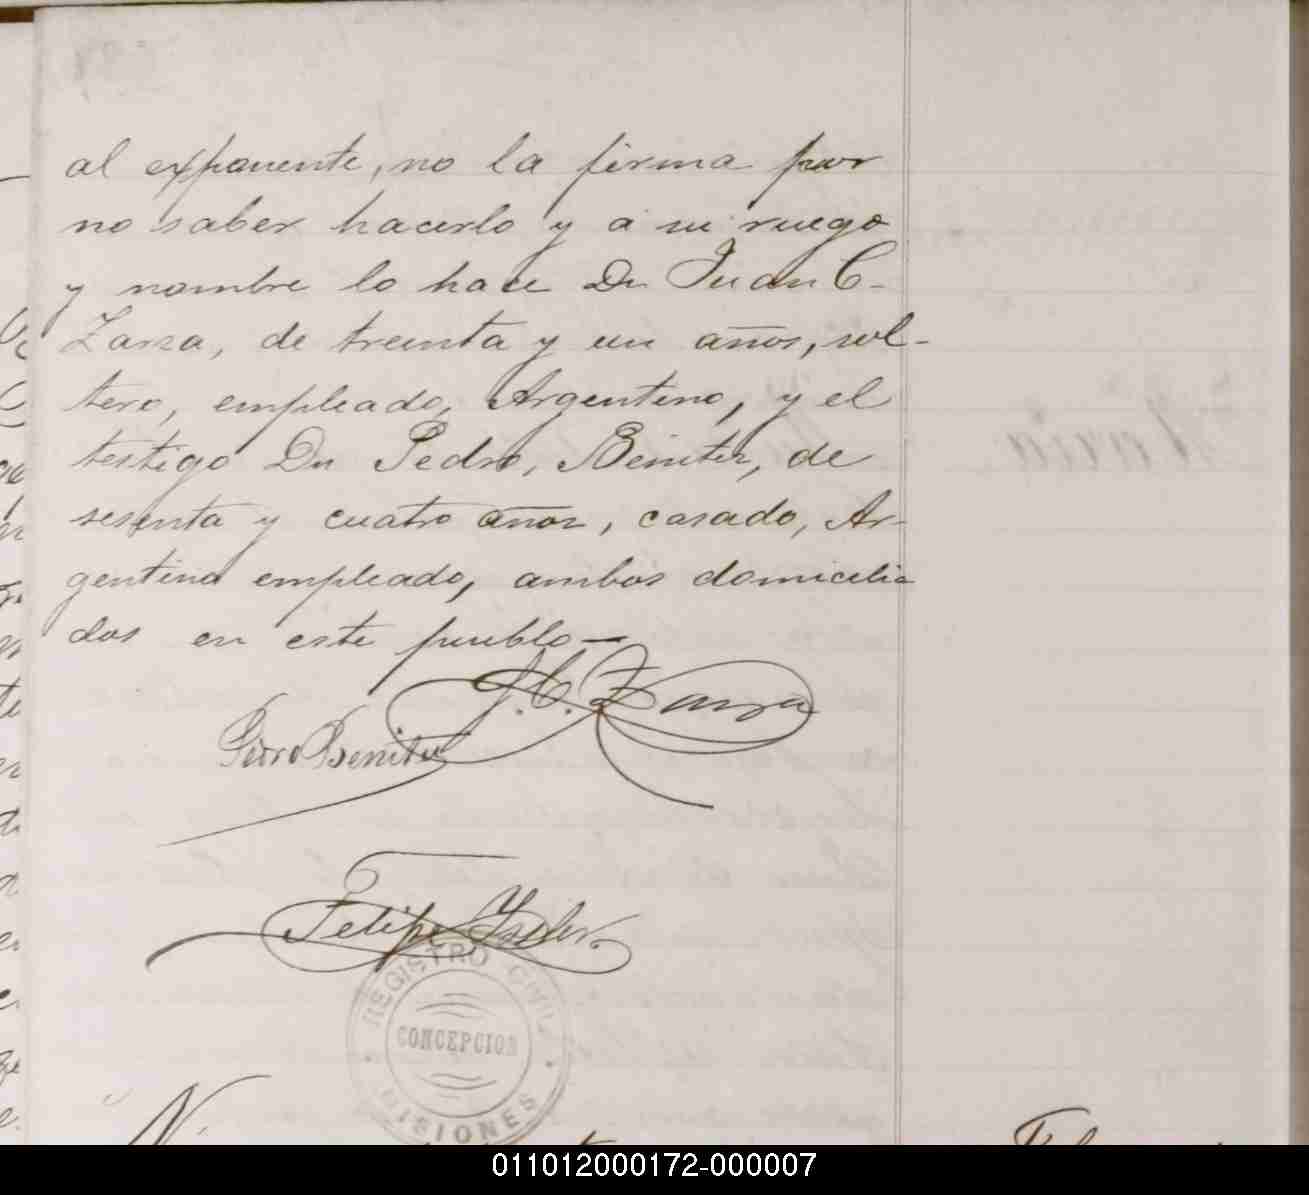 al exponente, no la firma por
no saber hacerlo y a su ruego
y nombre lo hace Dn Juan C.
Zarza, de treinta y un años, sol-
tero, empleado, Argentino, y el
testigo Dn Pedro, Benitez, de
sesenta y cuatro años, casado, Ar-
gentino empleado, ambos domicilia
dos en este pueblo—
J. C. Zarza
Pedro Benitez
Felipe
REGISTRO CIVIL
CONCEPCION
MISIONES
011012000172-000007